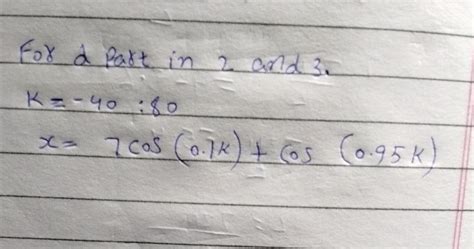 For d Part in 2 and 3.
K = -40 : 80
x = 7 cos (0.1K) + cos (0.95K)